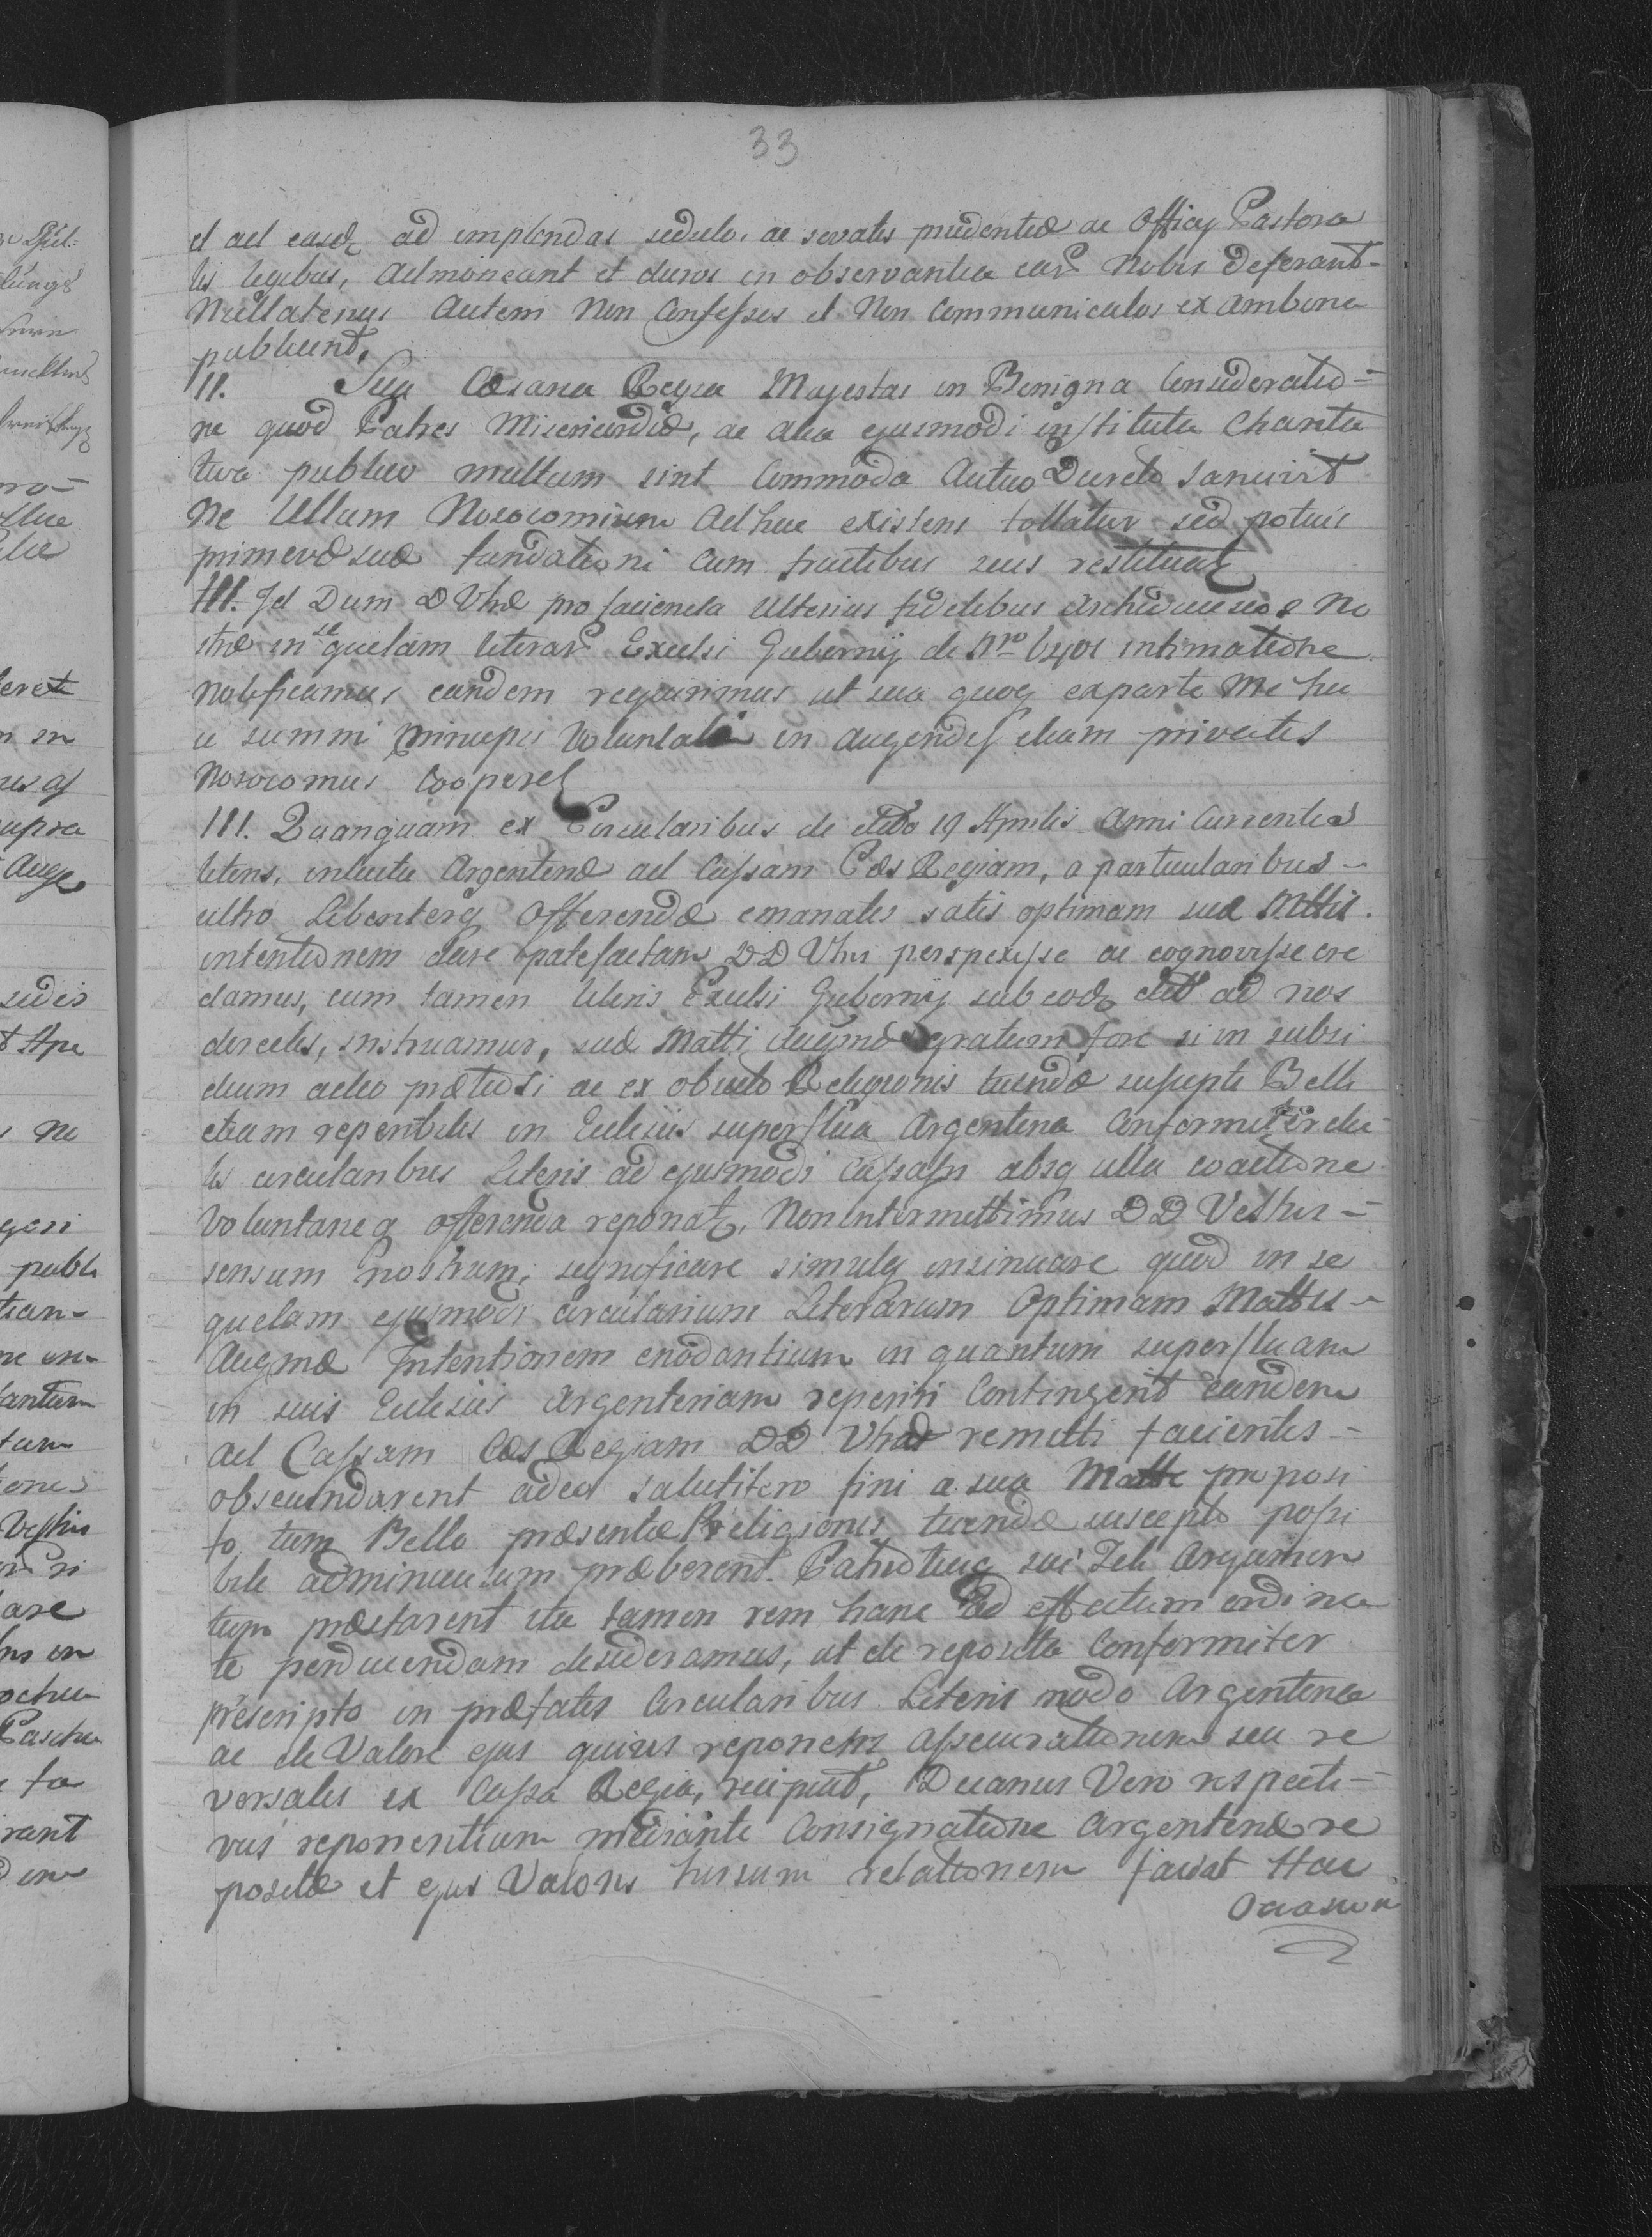 33
et ad easdq ad implendas sedulo, ac servatis prudentiæ ac Officy Pastora
lis legibus, admoneant et duros in observantia ear Nobis deferant-
Nullatenus autem Non Confessos et Non Communicatos ex ambona
publicent.
11. Sua Cæsarea Regia Majestas in Benigna Consideratio=
ne quod Patres Misericordiæ, ac alia ejusmodi instituta Charita
tiva publico multum sint Commoda Autico Decreto Sancivit
Ne Ullum Nosocomium Adhuc existens tollatur sed potius
primevæ suæ fundationi Cum fructibus suis restituatq
III. Id Dum D Vræ pro facienda Ulterius fidelibus Archidiæcesos No
stræ in sequelam literar Excelsi Gubernij de Nro 6401 intimatione
Notificamus eandem requirimus ut sua quoq exparte Me hu
ic summi Principis Voluntati in augendis etiam privatis
Nosocomiis Cooperetq
111. Quanquam ex Circularibus de dtto 19 Aprilis Anni Currentis
literis, intuitu Argenteriæ ad Cassam Cæs Regiam, a particularibus-
ultro Libenterq Offerendæ emanatis satis optimam suæ Mttis.
intentionem clare patefactam DD Vras perspexisse ac cognovisse cre
damus, cum tamen literis Excelsi Gubernij sub eodq dtto ad nos
directis, instruamur, suæ Matti augmæ gratum fore si in subsi
dium adeo prætiosi ac ex objecto Religionis tuendæ suscepti Belli
etiam repertibilis in Ecclesiis superflua Argenteria Conformiter dic
tis circularibus Literis ad ejusmodi Cassam absq ulla coactione
Voluntarieq offerenda reponatq, Non intermittimus DD Vestris=
sensum nostrum, significare simulq insinuare quod in se
quelam ejusmodi circularium Literarum Optimam Mattis-
Augmæ Intentionem enodantium in quantum superfluam
in suis Ecclesiis Argenteriam reperiri Contingerit eandem
ad Cassam Cæs Regiam DD Vræ remitti facientes-
obsecundarent adeo salutifero fini a sua Matte proposi
to tum Bello præsenti Religionis tuendæ suscepto possi
bile adminiculum præberent. Patrioticiq sui Zeli Argumen
tum præstarent ita tamen rem hanc ad effectum ordina
te perducendam desideramus, ut de reposita Conformiter
præscripto in præfatis Circularibus Literis modo Argenteria
ac de Valore ejus quivis reponens assecurationem seu re
versales ex Cassa Regia, recipiat, Decanus Vero respecti=
vus reponentium mediante Consignatione Argenteriæ re
positæ et ejus Valoris hirsum relationem faciat Hac
Occasion